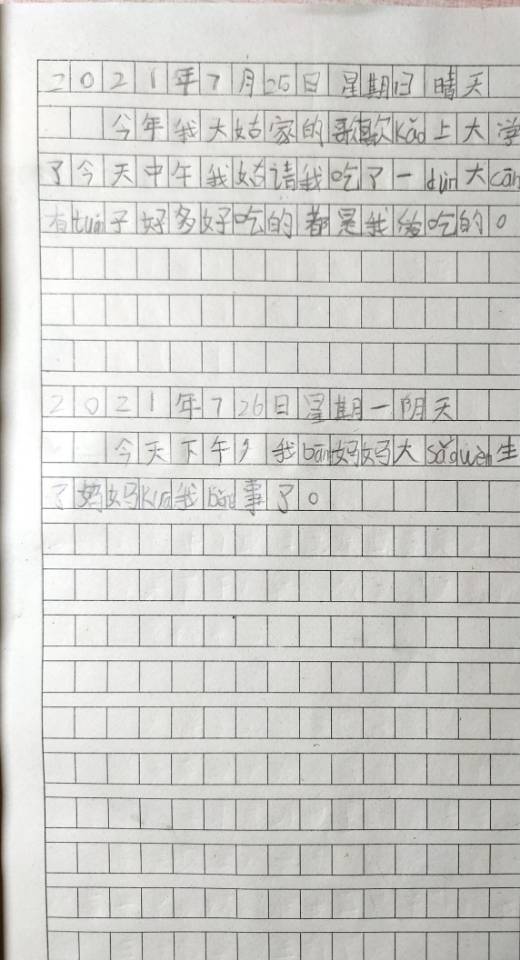 2021年7月25日星期日晴天
今年我大姑家的哥歌kǎo上大学
了今天中午我姑请我吃了一dùn大cān
有tuán子好多好吃的都是我爱吃的。
2021年726日星期一阴天
今天下午我bān妈妈大sǎo生
了妈妈kuā我dǒng事了。